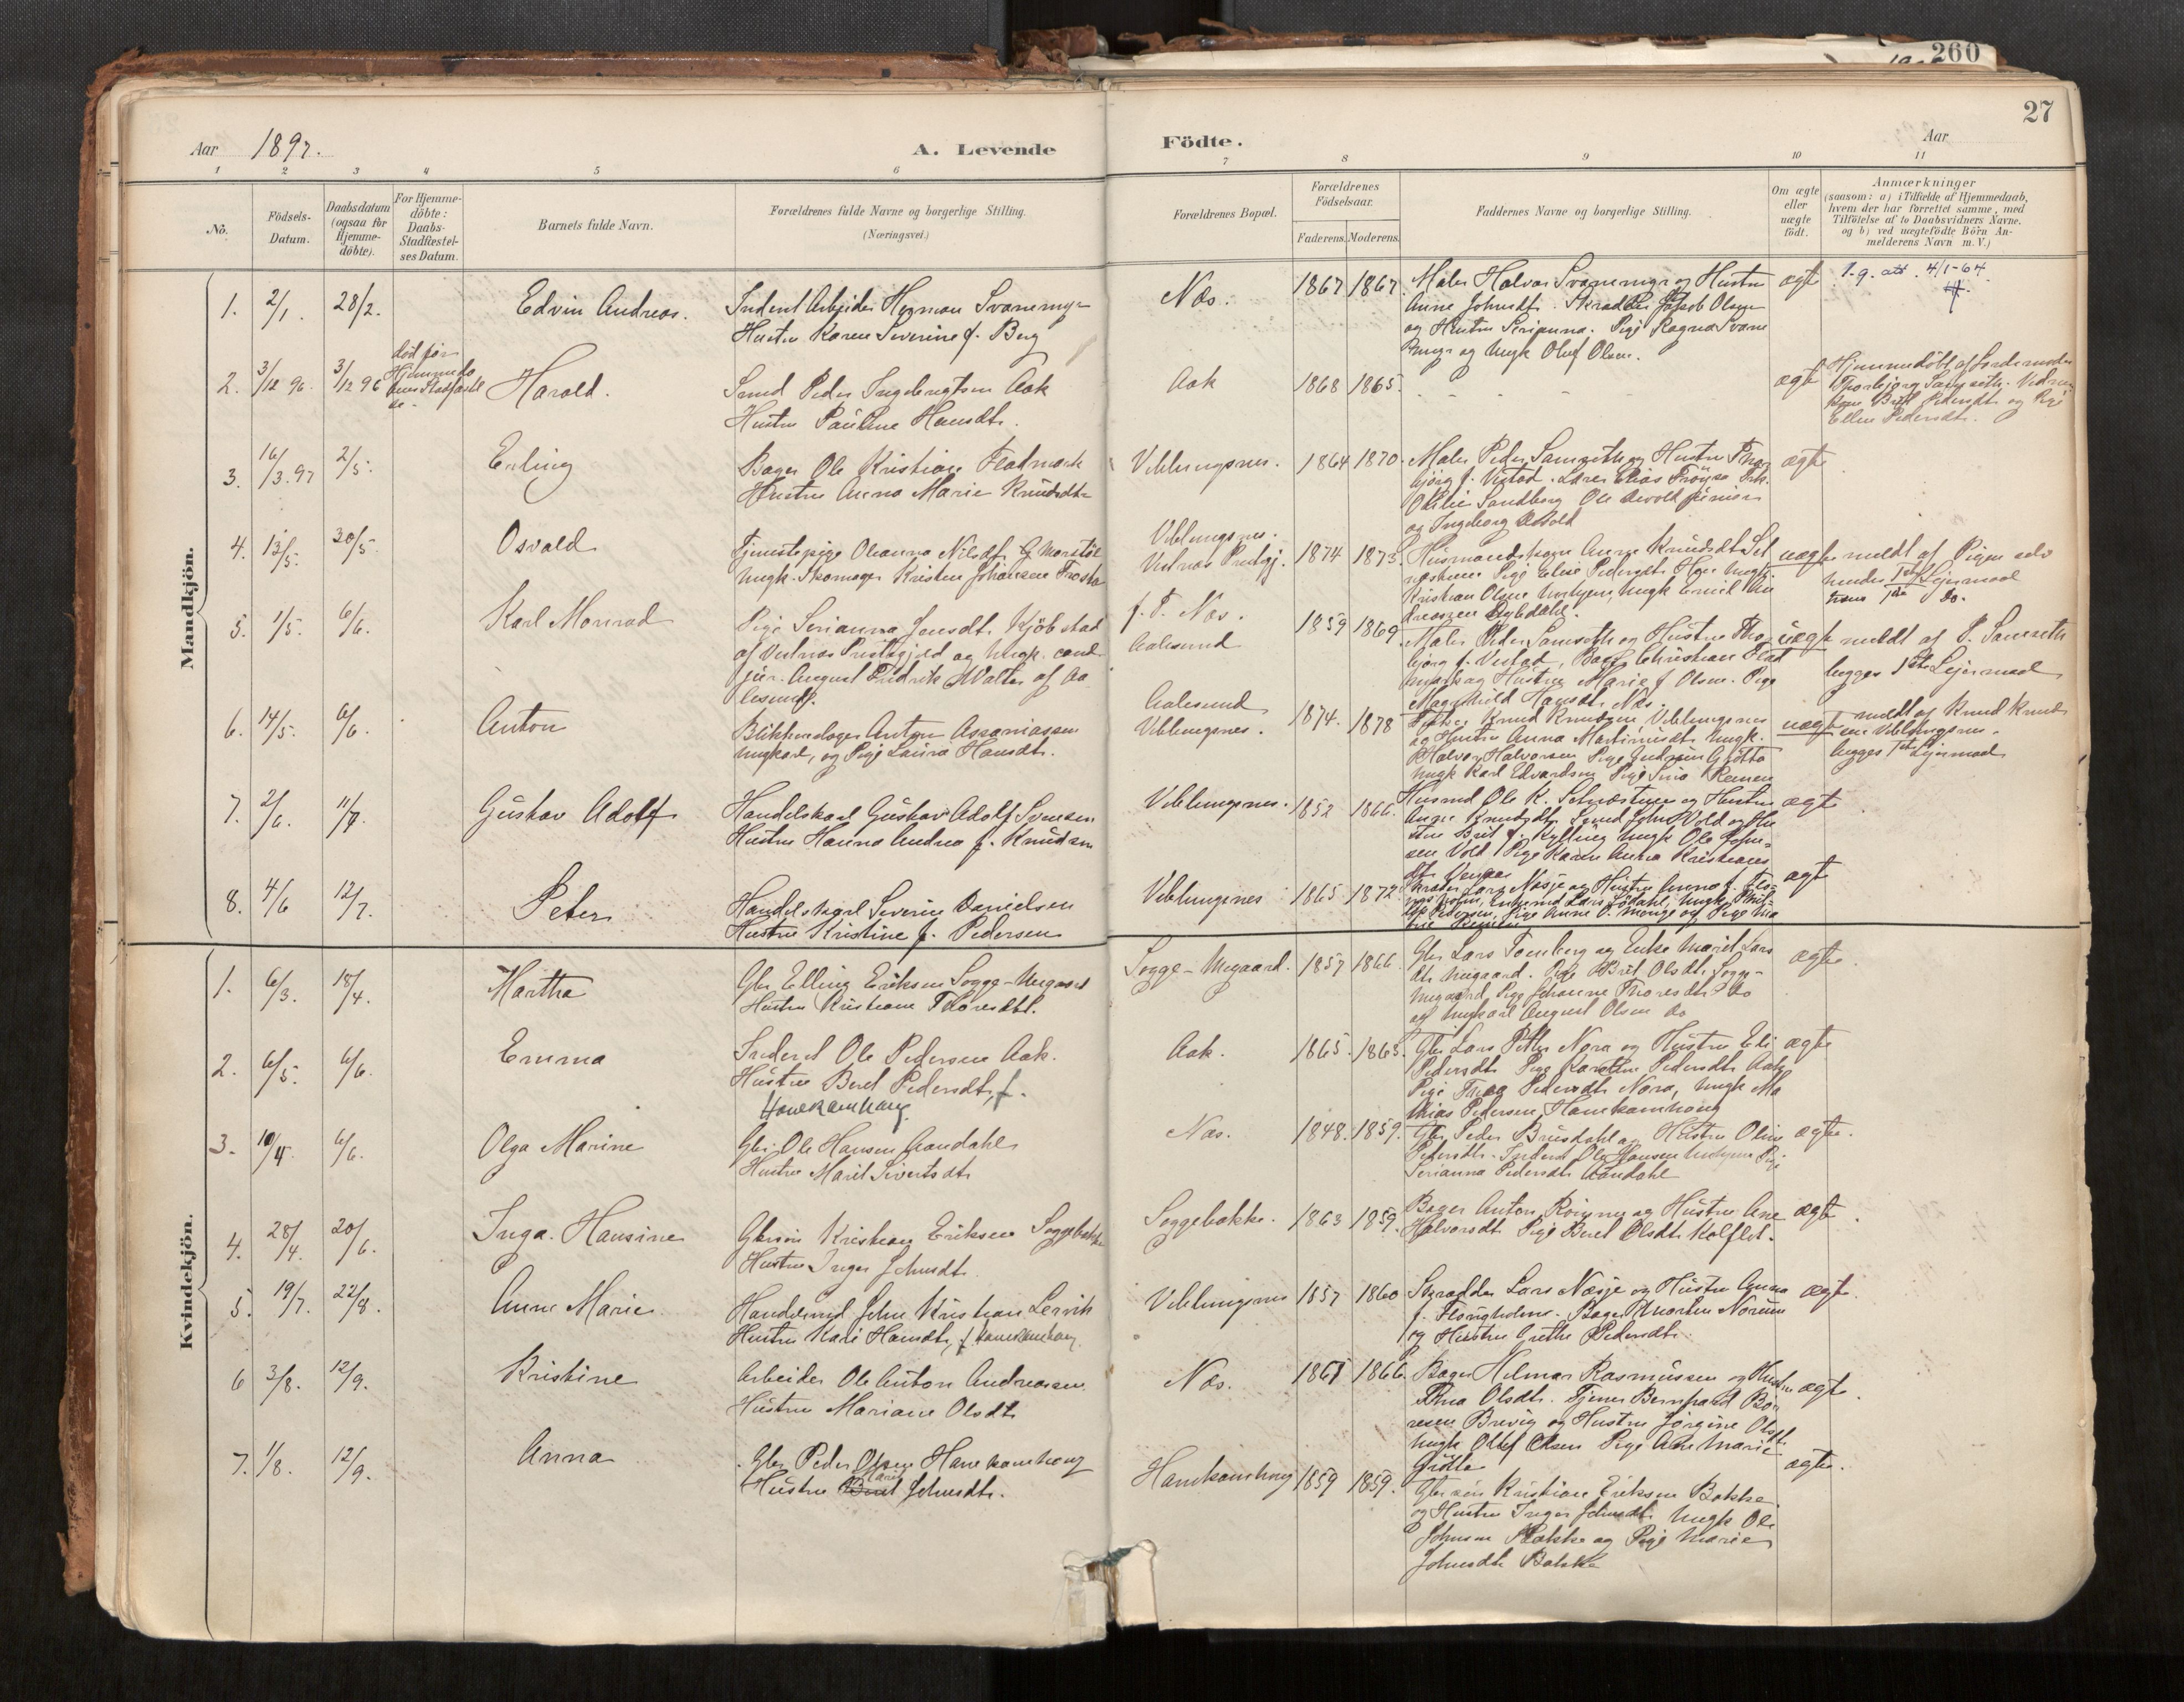 260
27
Aar 1897.
A. Levende
Födte.
Aar
1 2 3 4 5 6 7 8 9 10 11
No.
Födsels-Datum.
Daabsdatum (ogsaa for Hjemme-döbte).
For Hjemme-döbte: Daabs-Stadfæstel-ses Datum.
Barnets fulde Navn.
Forældrenes fulde Navne og borgerlige Stilling.
(Næringsvei.)
Forældrenes Bopæl.
Forældrenes Födselsaar.
Faderens. Moderens.
Faddernes Navne og borgerlige Stilling.
Om ægte eller uægte födt.
Anmærkninger
(saasom: a) i Tilfælde af Hjemmedaab,
hvem der har forrettet samme, med
Tilföielse af to Daabsvidners Navne.
og b) ved uægtefödte Börn An-
melderens Navn m. V.)
Mandkjön.
1. 2/1. 28/2. Edvin Andreas.
Inderst Arbeider Svanemyr
Hustru Karen Severine f. Berg
Næs. 1867 1867
Maler Halvor Svanemyr og Hustru
Anne Johnsdt. Skrædder Jakob Olsen
og Hustru Serianna. Pige Ragna Svane
myr og Ungk Oluf Olsen.
ægte
1.g. att. 4/1-64.
2. 3/12 96. 3/12 96
död før Hjemmedaa
bens Stadfæstel
se.
Harold.
Smed Peder Ingebrigtsen Aak
Hustru Pauline Hansdt.
Aak 1868 1865.
ægte
Hjemmedöbt af Jordemoder
Thorbjörg Samseth. Vidner
Kone Brit Pedersdt og Pige
Ellen Pedersdt.
3. 16/3.97 2/5. Erling
Bager Ole Kristian Flatmark
Hustru Anna Marie Knudsdt
Veblungsnes. 1864 1870.
Maler Peder Samseth og Hustru Thor
björg f. Vestad. Lærer Elias
Sandberg Ole
og Ingeborg
ægte
4. 13/5. 30/5. Osvald
Tjenestepige Oleanna Nilsdt
Ungk. Skomager Kristen Johansen
Veblungsnes.
Vestnæs Prestgj. 1874 1873.
Husmandskone Anne Knudsdt Set
næstuen Pige Elise Pedersdt Ungk
Kristian Olsen Ungk Emil An
dreasen Dybdahl.
uægte
meldt af Pigen selv
hendes 1ste Lejermaal
hans 1ste do.
5. 1/5. 6/6. Karl Monrad
Pige Serianna Jensdt. Kjöbstad
af Vestnæs Prestegjeld og Ungk. cand
jur. August Fredrik Walter af Aa
lesund.
f. T. Næs.
Aalesund 1859 1869
Maler Peder Samseth og Hustru Thor
björg f. Vestad, Bager Christian Flat
mark og Hustru Marie f Olsen. Pige
Magnhild Hansdt Næs.
uægte
meldt af P. Samseth
begges 1ste Lejermaal
6. 14/5. 6/6. Anton
Blikkenslager Anton Assaniassen
ungkarl, og Pige Laura Hansdt.
Aalesund
Veblungsnes. 1874. 1878
Knud Knudsen Veblungsnes
og Hustru Anna Martinusdt Ungk.
Halvor Halvorsen Pige
Ungk Karl Edvardsen Pige
uægte
meldt af Knud Knud
sen Veblungsnes.
begges 1ste Lejermaal
7. 2/6. 11/7. Gustav Adolf
Handelskarl Gustav Adolf Svensen
Hustru Hanna Andrea f. Knudsen
Veblungsnes. 1852 1866.
Husmd Ole K. Setnæstuen og Hustru
Anne Knudsdt. Smed John Vold og Hu
stru Brit f. Kylling Ungk Ole John-
sen Vold Pige Karen Anna Kristians
dt
ægte
8. 4/6 12/7. Peter
Handelskarl Severin Danielsen
Hustru Kristine f. Pedersen
Veblungsnes 1865 1872
Skrædder Lars Næsje og Hustru Anna f. Flo-
Pedersen, Pige Anne
ægte
Kvindekjön.
1. 6/3. 18/4. Martha
Gbr Elling Eriksen Sogge-Nygaard
Hustru Kristiane Thoresdt.
Sogge-Nygaard. 1857 1866
Gbr Lars Tomberg og Enke Marit Lars
dt Nygaard. Pige Brit Olsdt. Sogge-
Nygaard, Pige Johanne Thoresdt do
og Ungkarl August Olsen do
ægte
2. 6/5. 6/6. Emma
Inderst Ole Pedersen Aak.
Hustru Beret Pedersdt, f.
Hanekamhaug
Aak. 1865. 1865.
Gbr Lars Nora og Hustru Eli
Pedersdt Pige Karoline Pedersdt Aak
Pige Pedersdt Nora, Ungk Ma
thias Pedersen Hanekamhaug
ægte
3. 10/4 6/6. Olga Marine
Gbr. Ole Hansen Aandahl
Hustru Marit Sivertsdt
Næs. 1848. 1859.
Gbr Peder Brüsdahl og Hustru Oline
Pedersdt. Inderst Ole Hansen Pige
Serianna Pedersdt Aandahl
ægte.
4. 28/4. 20/6. Inga. Hansine
Gbrsön Kristian Eriksen Soggebakke
Hustru Inger Johnsdt
Soggebakke. 1863 1859.
Bager Anton og Hustru Ane
Halvorsdt Pige Beret Olsdt Kolflot.
ægte
5. 19/7. 22/8. Anne Marie.
Handelsmd John Kristian Lervik
Hustru Kari Hansdt, f. Hanekamhaug.
Veblungsnes 1857 1860
Skrædder Lars Næsje og Hustru Anna
f. Bager Morten
og Hustru Grethe Pedersdt.
ægte.
6 3/8. 12/9. Kristine
Arbeider Ole Anton Andreassen.
Hustru Mariane Olsdt
Næs. 1866.
Bager Hilmar Rasmussen og Hustru
Olsdt. Tjener Bernhard Bör
resen Brevig og Hustru Jörgine Olsdt
Ungk Oluf Olsen Pige Ane Marie
Grötta
ægte.
7. 1/8. 12/9. Anna
Gbr Peder Olsen Hanekamhaug
Marit
Hustru Beret Johnsdt.
Hanekamhaug 1859 1859.
Gbrsön Kristian Eriksen Bakke.
og Hustru Inger Johnsdt Ungk Ole
Johnsen Bakke og Pige Marie
Johnsdt Bakke
ægte.